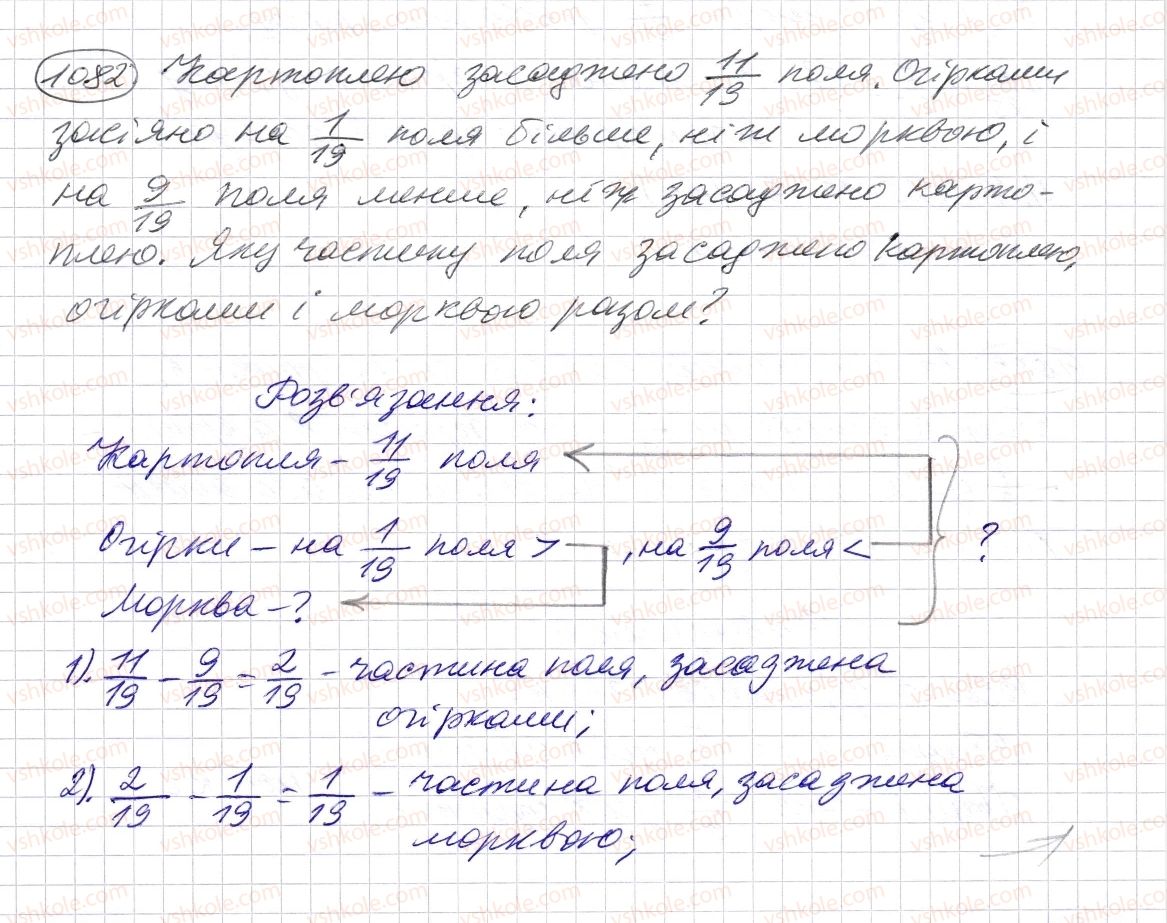 1082 Картоплею засаджено 11/19 поля. Огірками
засіяно на 1/19 поля більше, ніж морквою, і
на 9/19 поля менше, ніж засаджено карто-
плею. Яку частину поля засаджено картоплею,
огірками і морквою разом?
Розв'язання:
Картопля - 11/19 поля
Огірки - на 1/19 поля > , на 9/19 поля < ?
Морква - ?
1). 11/19 - 9/19 = 2/19 - частина поля, засаджена
огірками;
2). 2/19 - 1/19 = 1/19 - частина поля, засаджена
морквою;
vshkole.com